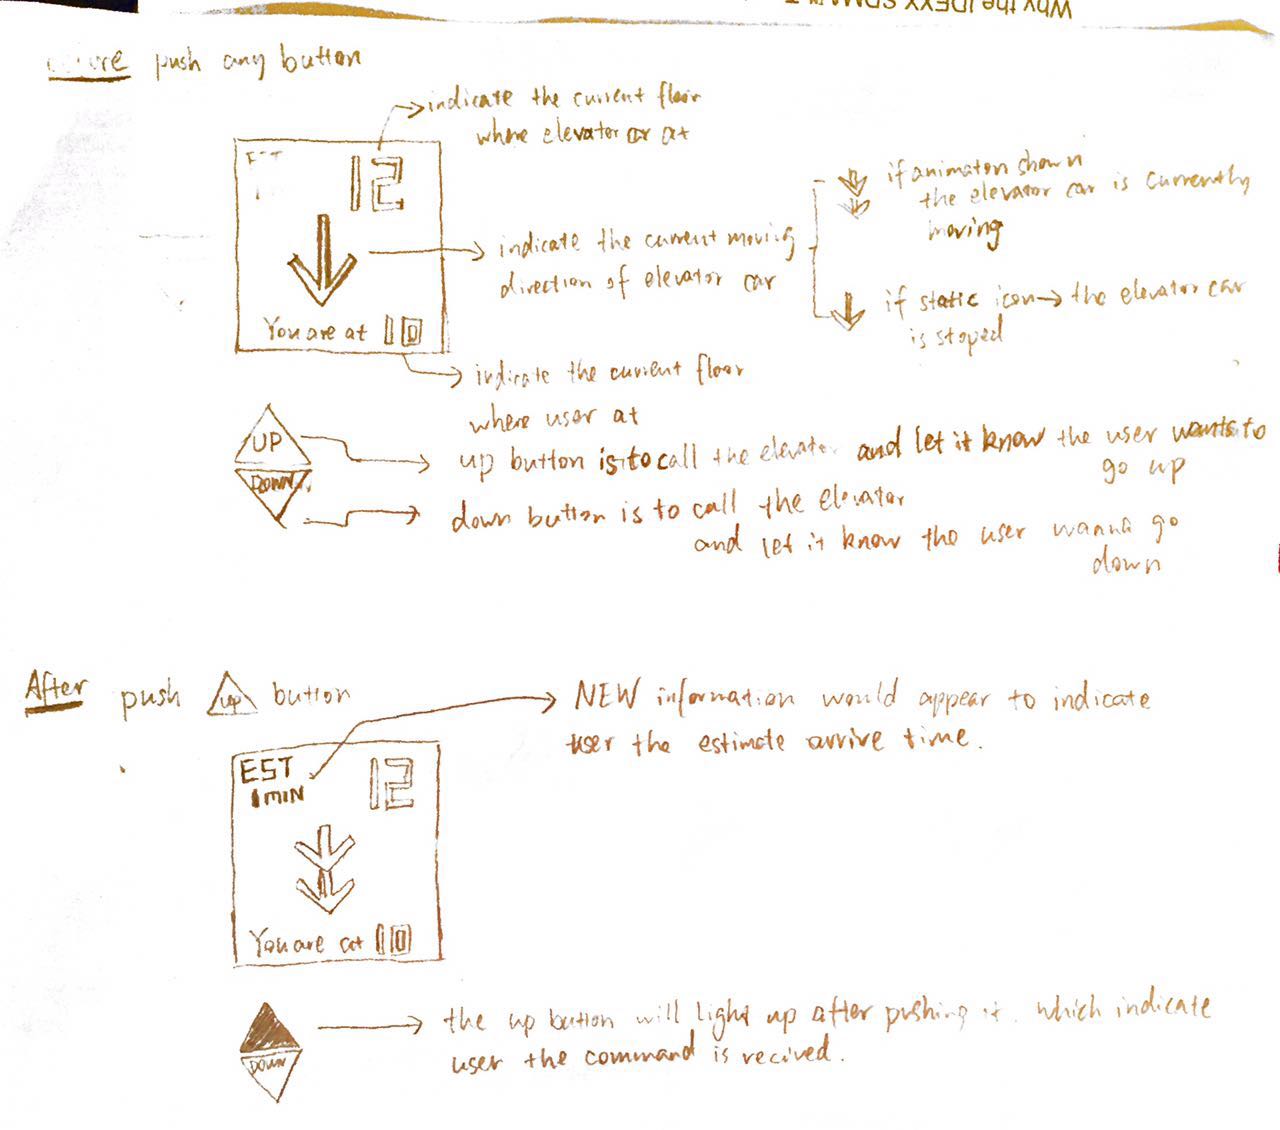 push any button
indicate the current floor
where elevator car at
12
You are at 10
indicate the current moving
direction of elevator car
if animaton shown
the elevator car is currently
moving
if static icon → the elevator car
is stoped
indicate the current floor
where user at
UP
DOWN
up button is to call the elevator and let it know the user wants to
go up
down button is to call the elevator
and let it know the user wanna go
down
After push UP button
NEW information would appear to indicate
user the estimate arrive time.
EST
1 MIN
12
You are at 10
DOWN
the up button will light up after pushing it. which indicate
user the command is recived.
Why the IDEXX SDMA